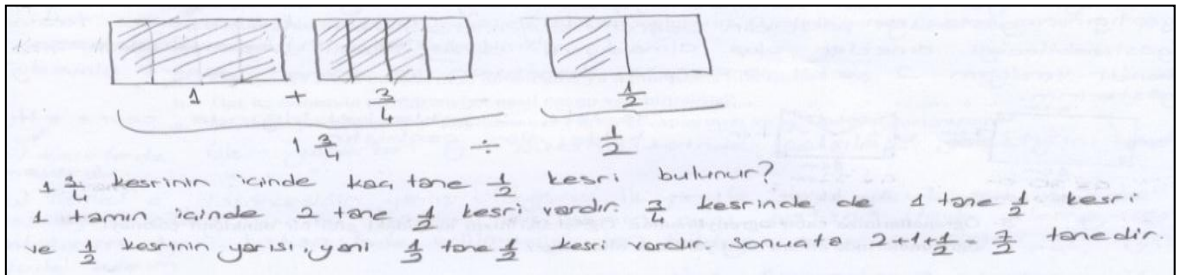 1 + 3/4 1/2
1 3/4 ÷ 1/2
1 3/4 kesrinin içinde kaç tane 1/2 kesri bulunur?
1 tamın içinde 2 tane 1/2 kesri vardır. 3/4 kesrinde de 1 tane 1/2 kesri
ve 1/2 kesrinin yarısı, yani 1/2 tane 1/2 kesri vardır. Sonuçta 2+1+1/2 = 7/2 tanedir.